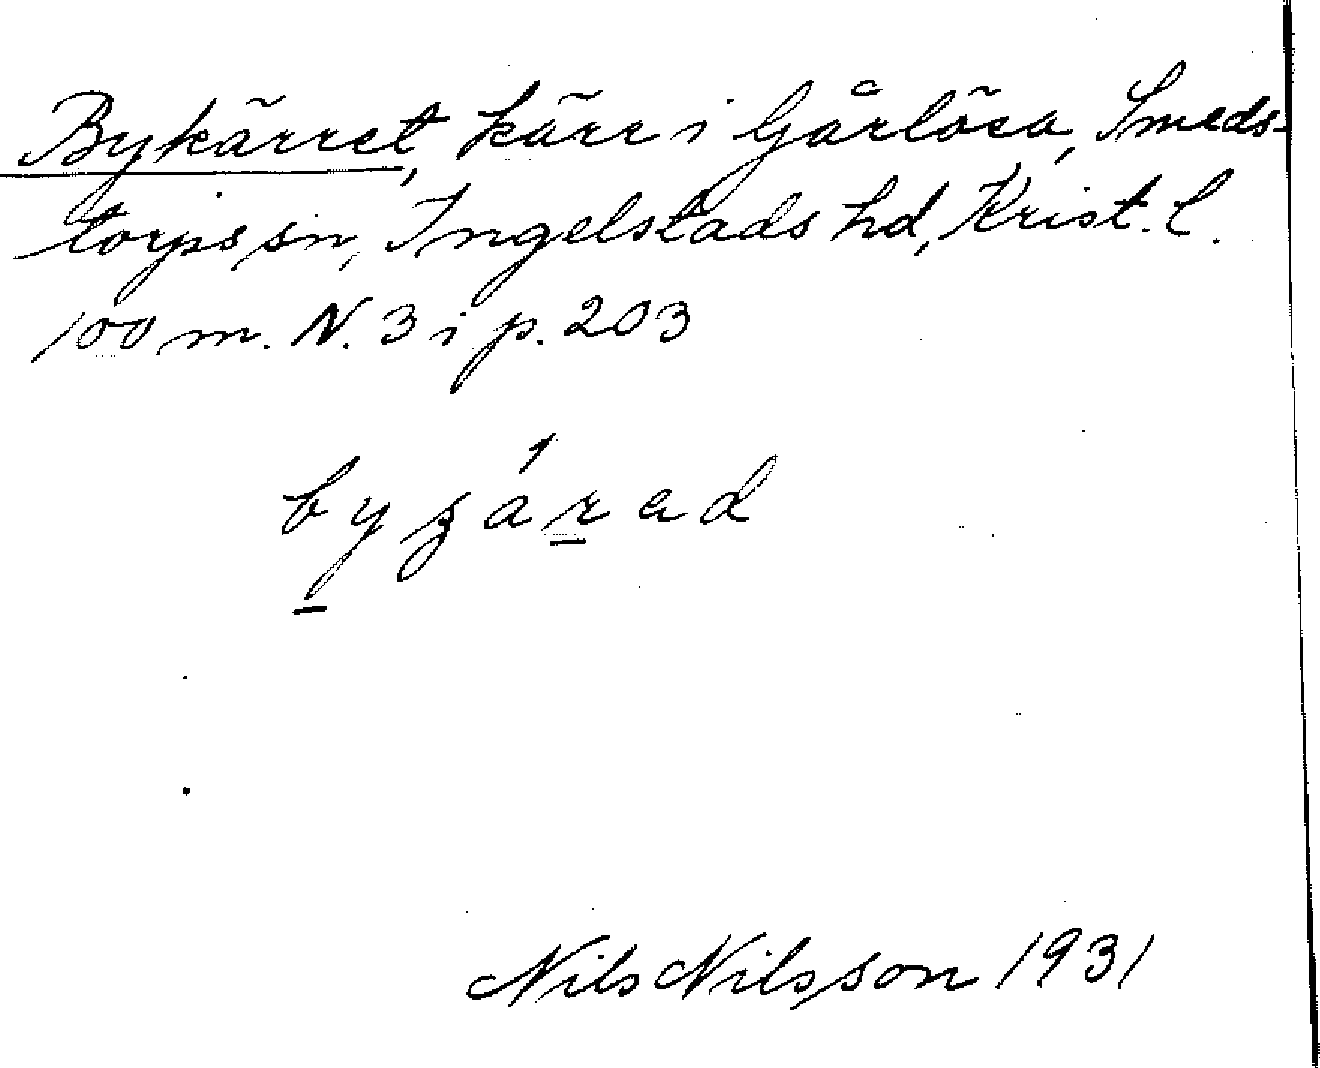 Bykärret, kärr i Gårlösa, Smeds-
torps sn, Ingelstads hd, Krist. l.
100 m. N. 3 i p. 203
Nils Nilsson 1931